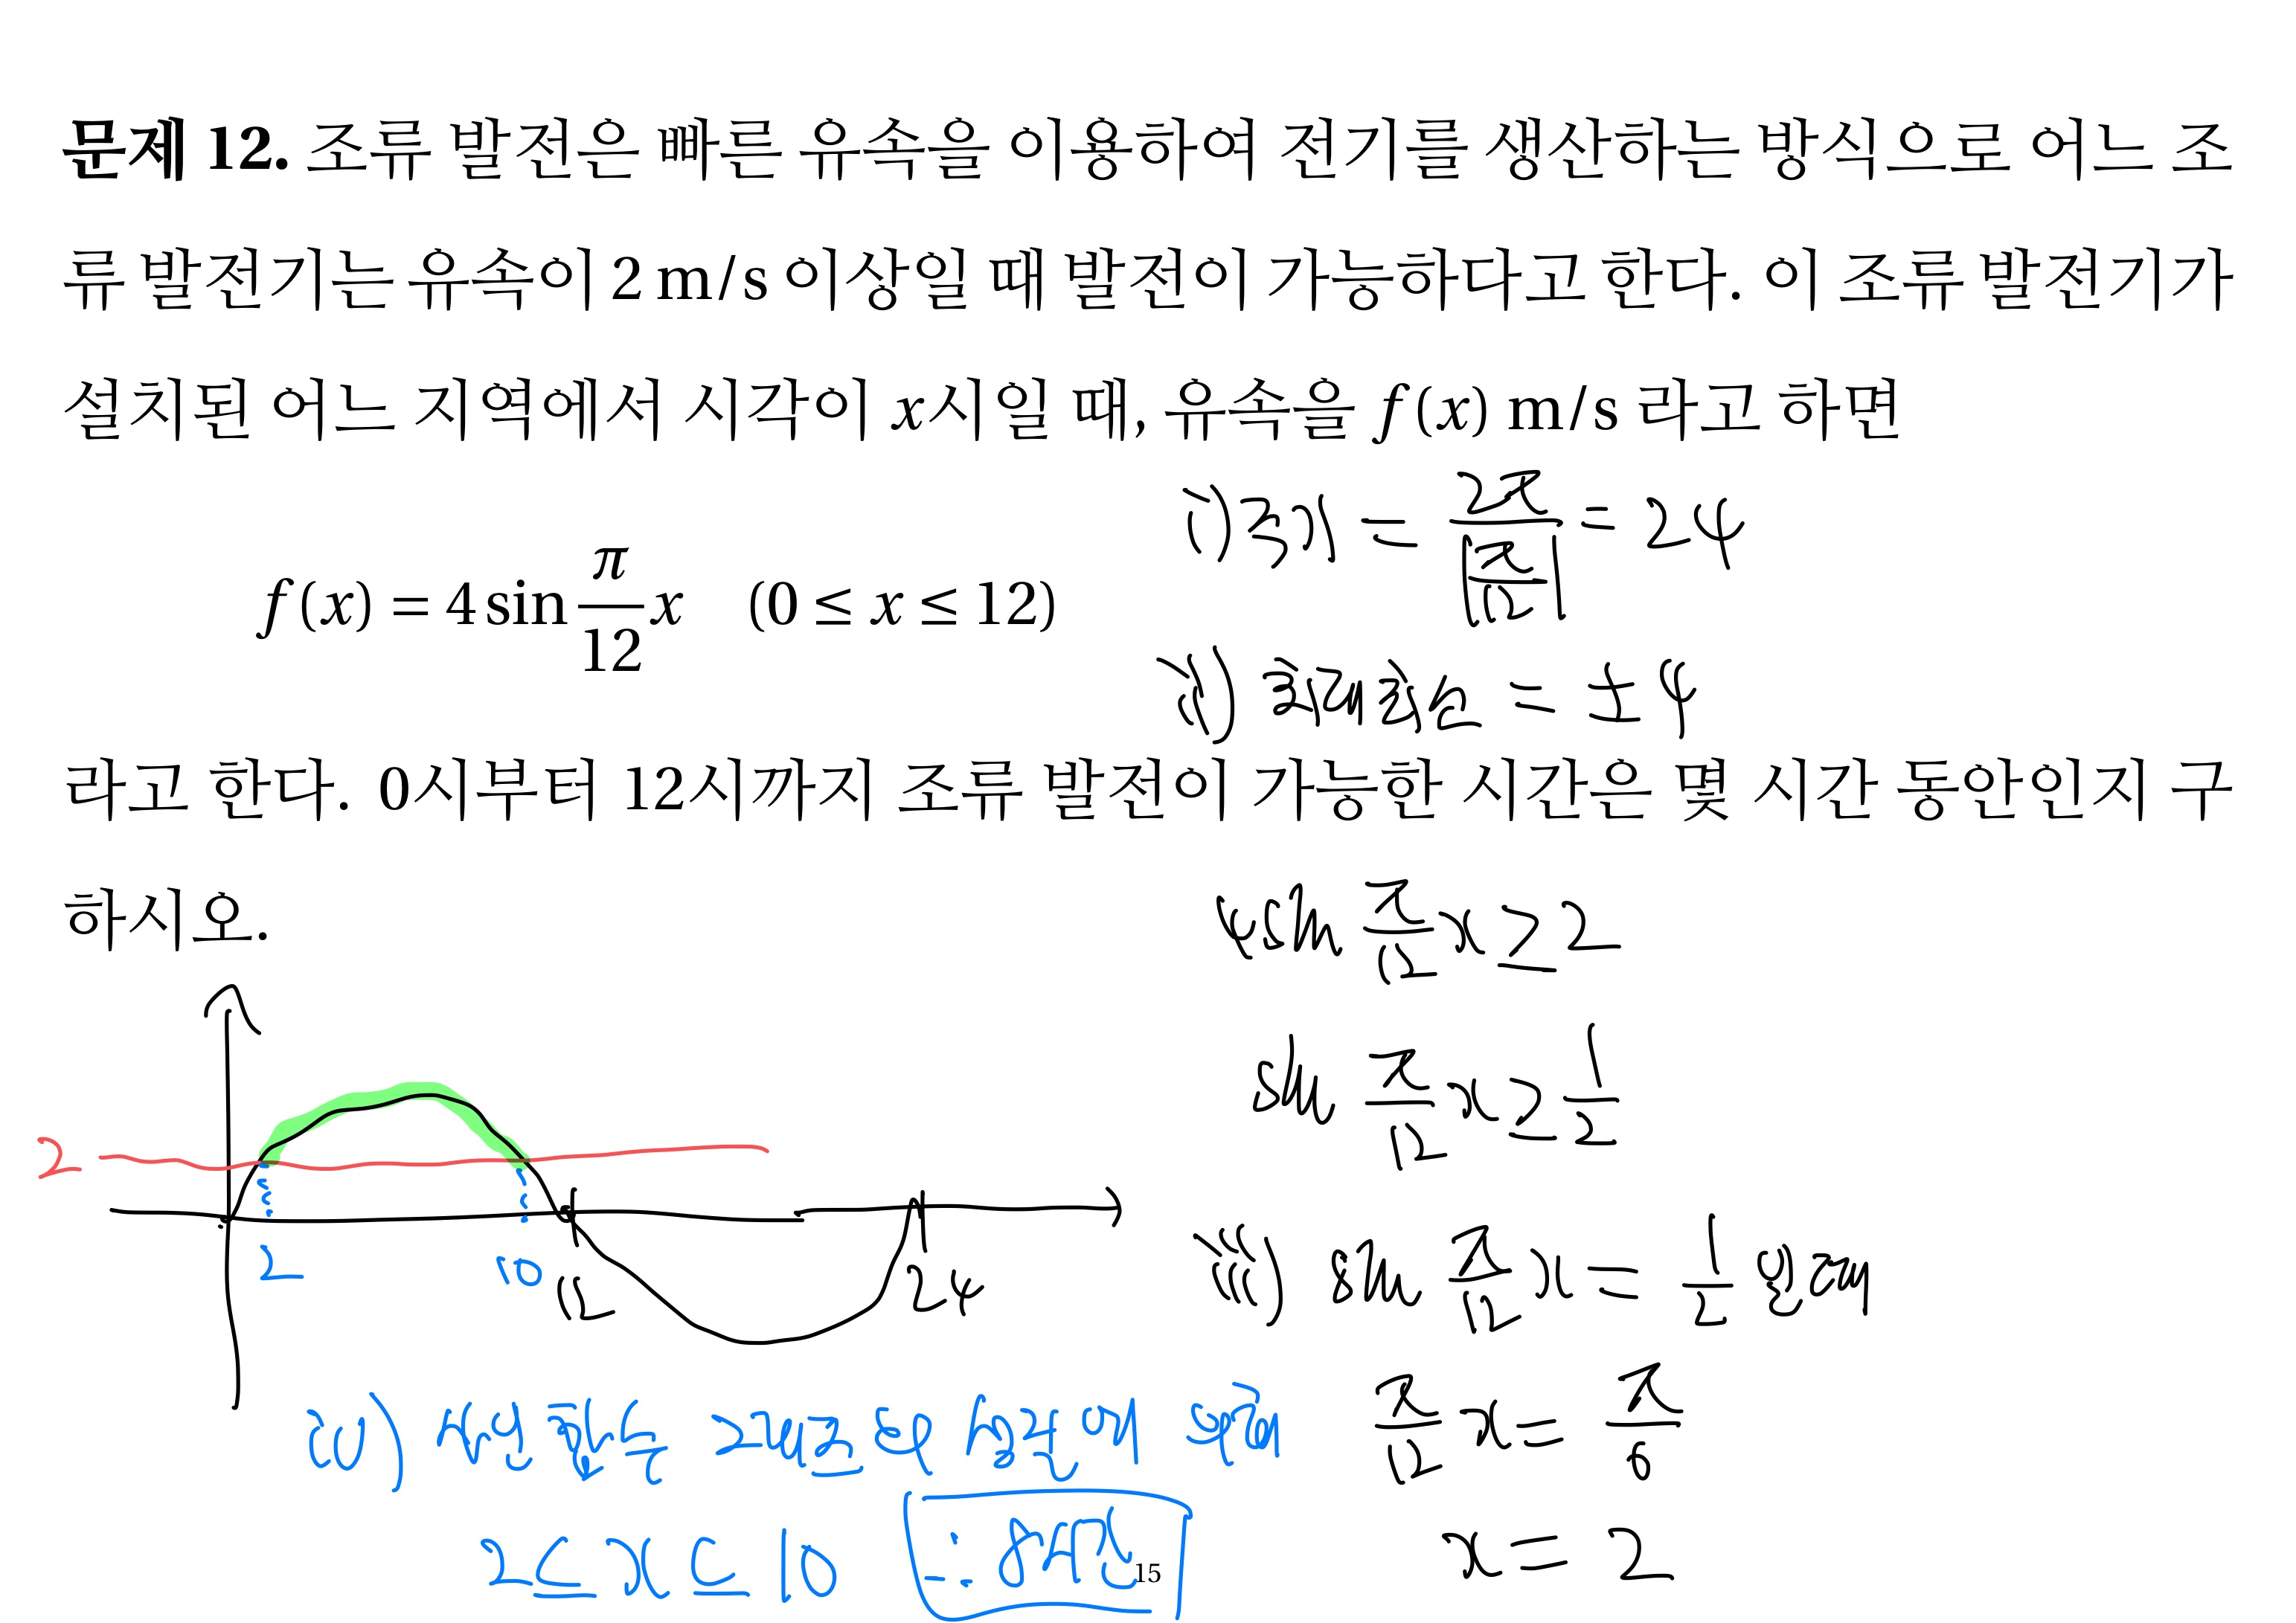 문제 12. 조류 발전은 빠른 유속을 이용하여 전기를 생산하는 방식으로 어느 조
류 발전기는 유속이 2 m/s 이상일 때 발전이 가능하다고 한다. 이 조류 발전기가
설치된 어느 지역에서 시각이 x시일 때, 유속을 f(x) m/s 라고 하면
i) 주기 = 2π/|π/12| = 24
f(x) = 4 sin π/12 x (0 ≤ x ≤ 12)
ii) 최대최소 = ±4
라고 한다. 0시부터 12시까지 조류 발전이 가능한 시간은 몇 시간 동안인지 구
하시오.
4sin π/12 x ≥ 2
sin π/12 x ≥ 1/2
2
iii) sin π/12 x = 1/2 일 때
2 10 12 24
π/12 x = π/6
iv) 사인함수 그래프의 성질에 의해
x = 2
2 ≤ x ≤ 10 ∴ 8시간
15